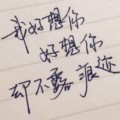 我好想你
好想你
却不露痕迹